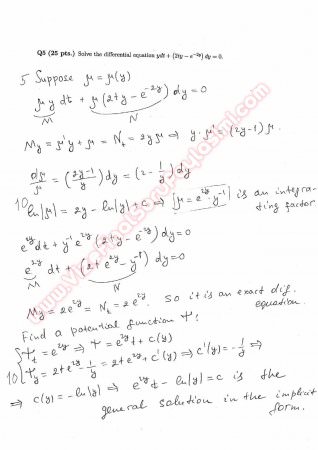 Q5 (25 pts.) Solve the differential equation ydt + (2ty − e^{−2y}) dy = 0.
5 Suppose μ = μ(y)
μy dt + μ(2ty − e^{−2y}) dy = 0
M N
M_y = μ'y + μ = N_t = 2yμ ⇒ y·μ' = (2y−1) μ.
dμ/μ = ((2y−1)/y) dy = (2 − 1/y) dy
10 ln|μ| = 2y − ln|y| + c ⇒ μ = e^{2y} y^{−1} is an integra-
ting factor
e^{2y} dt + y^{−1} e^{2y} (2ty − e^{−2y}) dy = 0
e^{2y} dt + (2t e^{2y} − y^{−1}) dy = 0
M N
M_y = 2e^{2y} = N_t = 2e^{2y}. So it is an exact dif.
equation.
Find a potential function Ψ:
Ψ_t = e^{2y} ⇒ Ψ = e^{2y} t + c(y)
10 Ψ_y = 2t e^{2y} − 1/y = 2t e^{2y} + c'(y) ⇒ c'(y) = −1/y ⇒
⇒ c(y) = −ln|y| ⇒ e^{2y} t − ln|y| = c is the
general solution in the implicit
form.